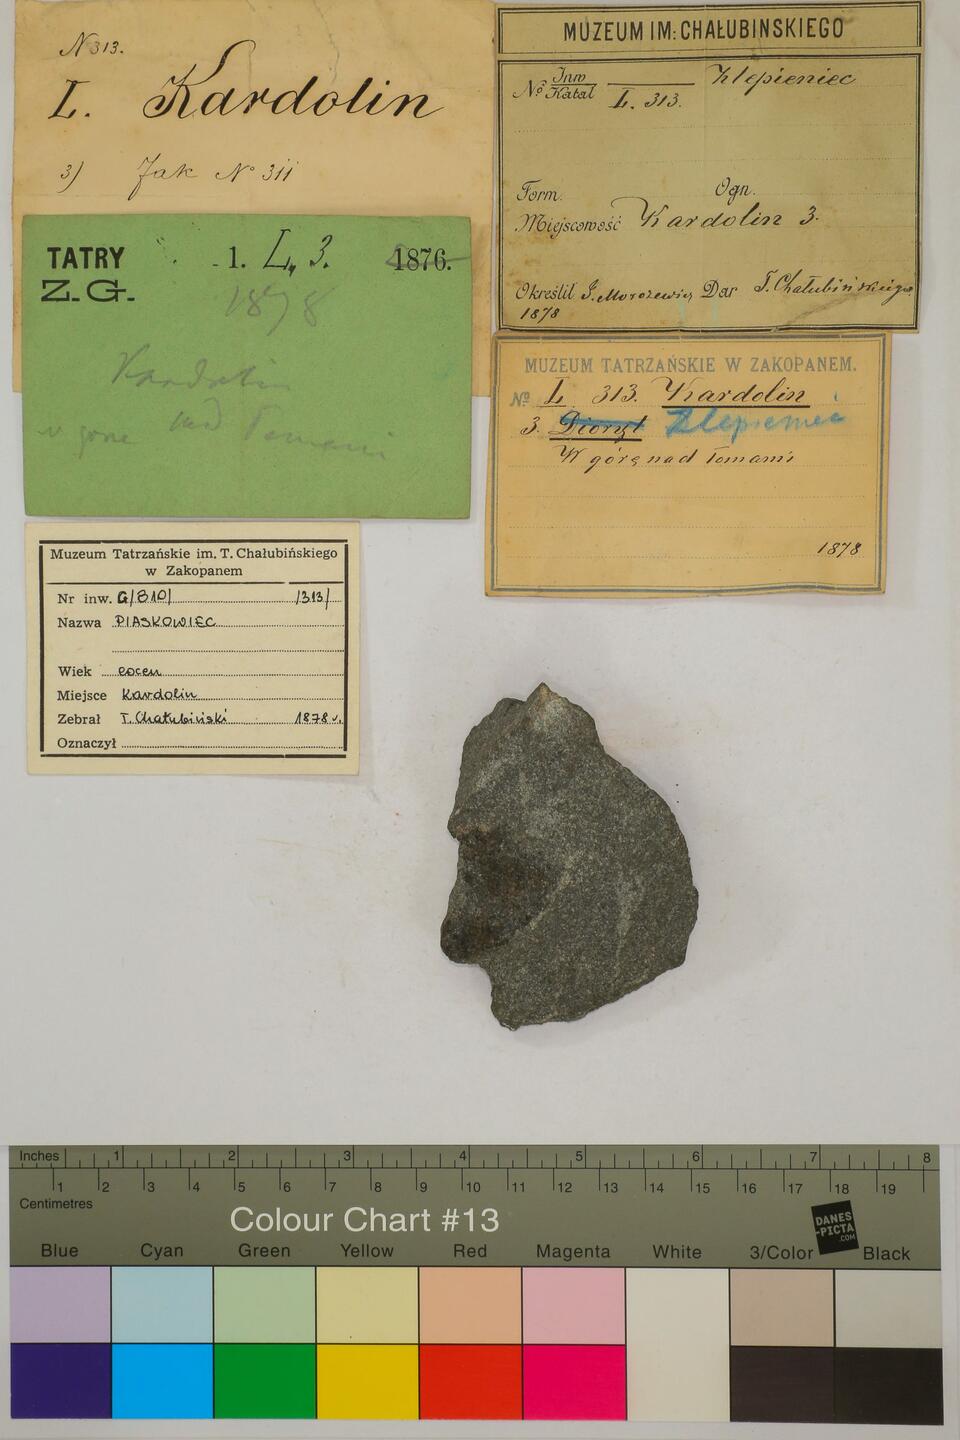 N 313.
I. Kardolin
3) Jak Nº 311
MUZEUM IM: CHAŁUBINSKIEGO
Nº Inw Zlepieniec
Katal I. 313.
Form. Ogn.
Miejscowość Kardolin 3.
Określił J. Morozewicz Dar T. Chałubińskiego
1878
TATRY 1. I, 3. 1876.
Z. G. 1878
Kardolin
w górę nad Tomami
MUZEUM TATRZAŃSKIE W ZAKOPANEM.
Nº I 313. Kardolin
3. Dioryt Zlepieniec
W górę nad Tomami
1878
Muzeum Tatrzańskie im. T. Chałubińskiego
w Zakopanem
Nr inw. G/810/ /313/
Nazwa PIASKOWIEC
Wiek eocen
Miejsce Kardolin
Zebrał T. Chałubiński 1878 r.
Oznaczył
Inches 1 2 3 4 5 6 7 8
1 2 3 4 5 6 7 8 9 10 11 12 13 14 15 16 17 18 19
Centimetres
Colour Chart #13
DANES
-PICTA
.COM
Blue Cyan Green Yellow Red Magenta White 3/Color Black